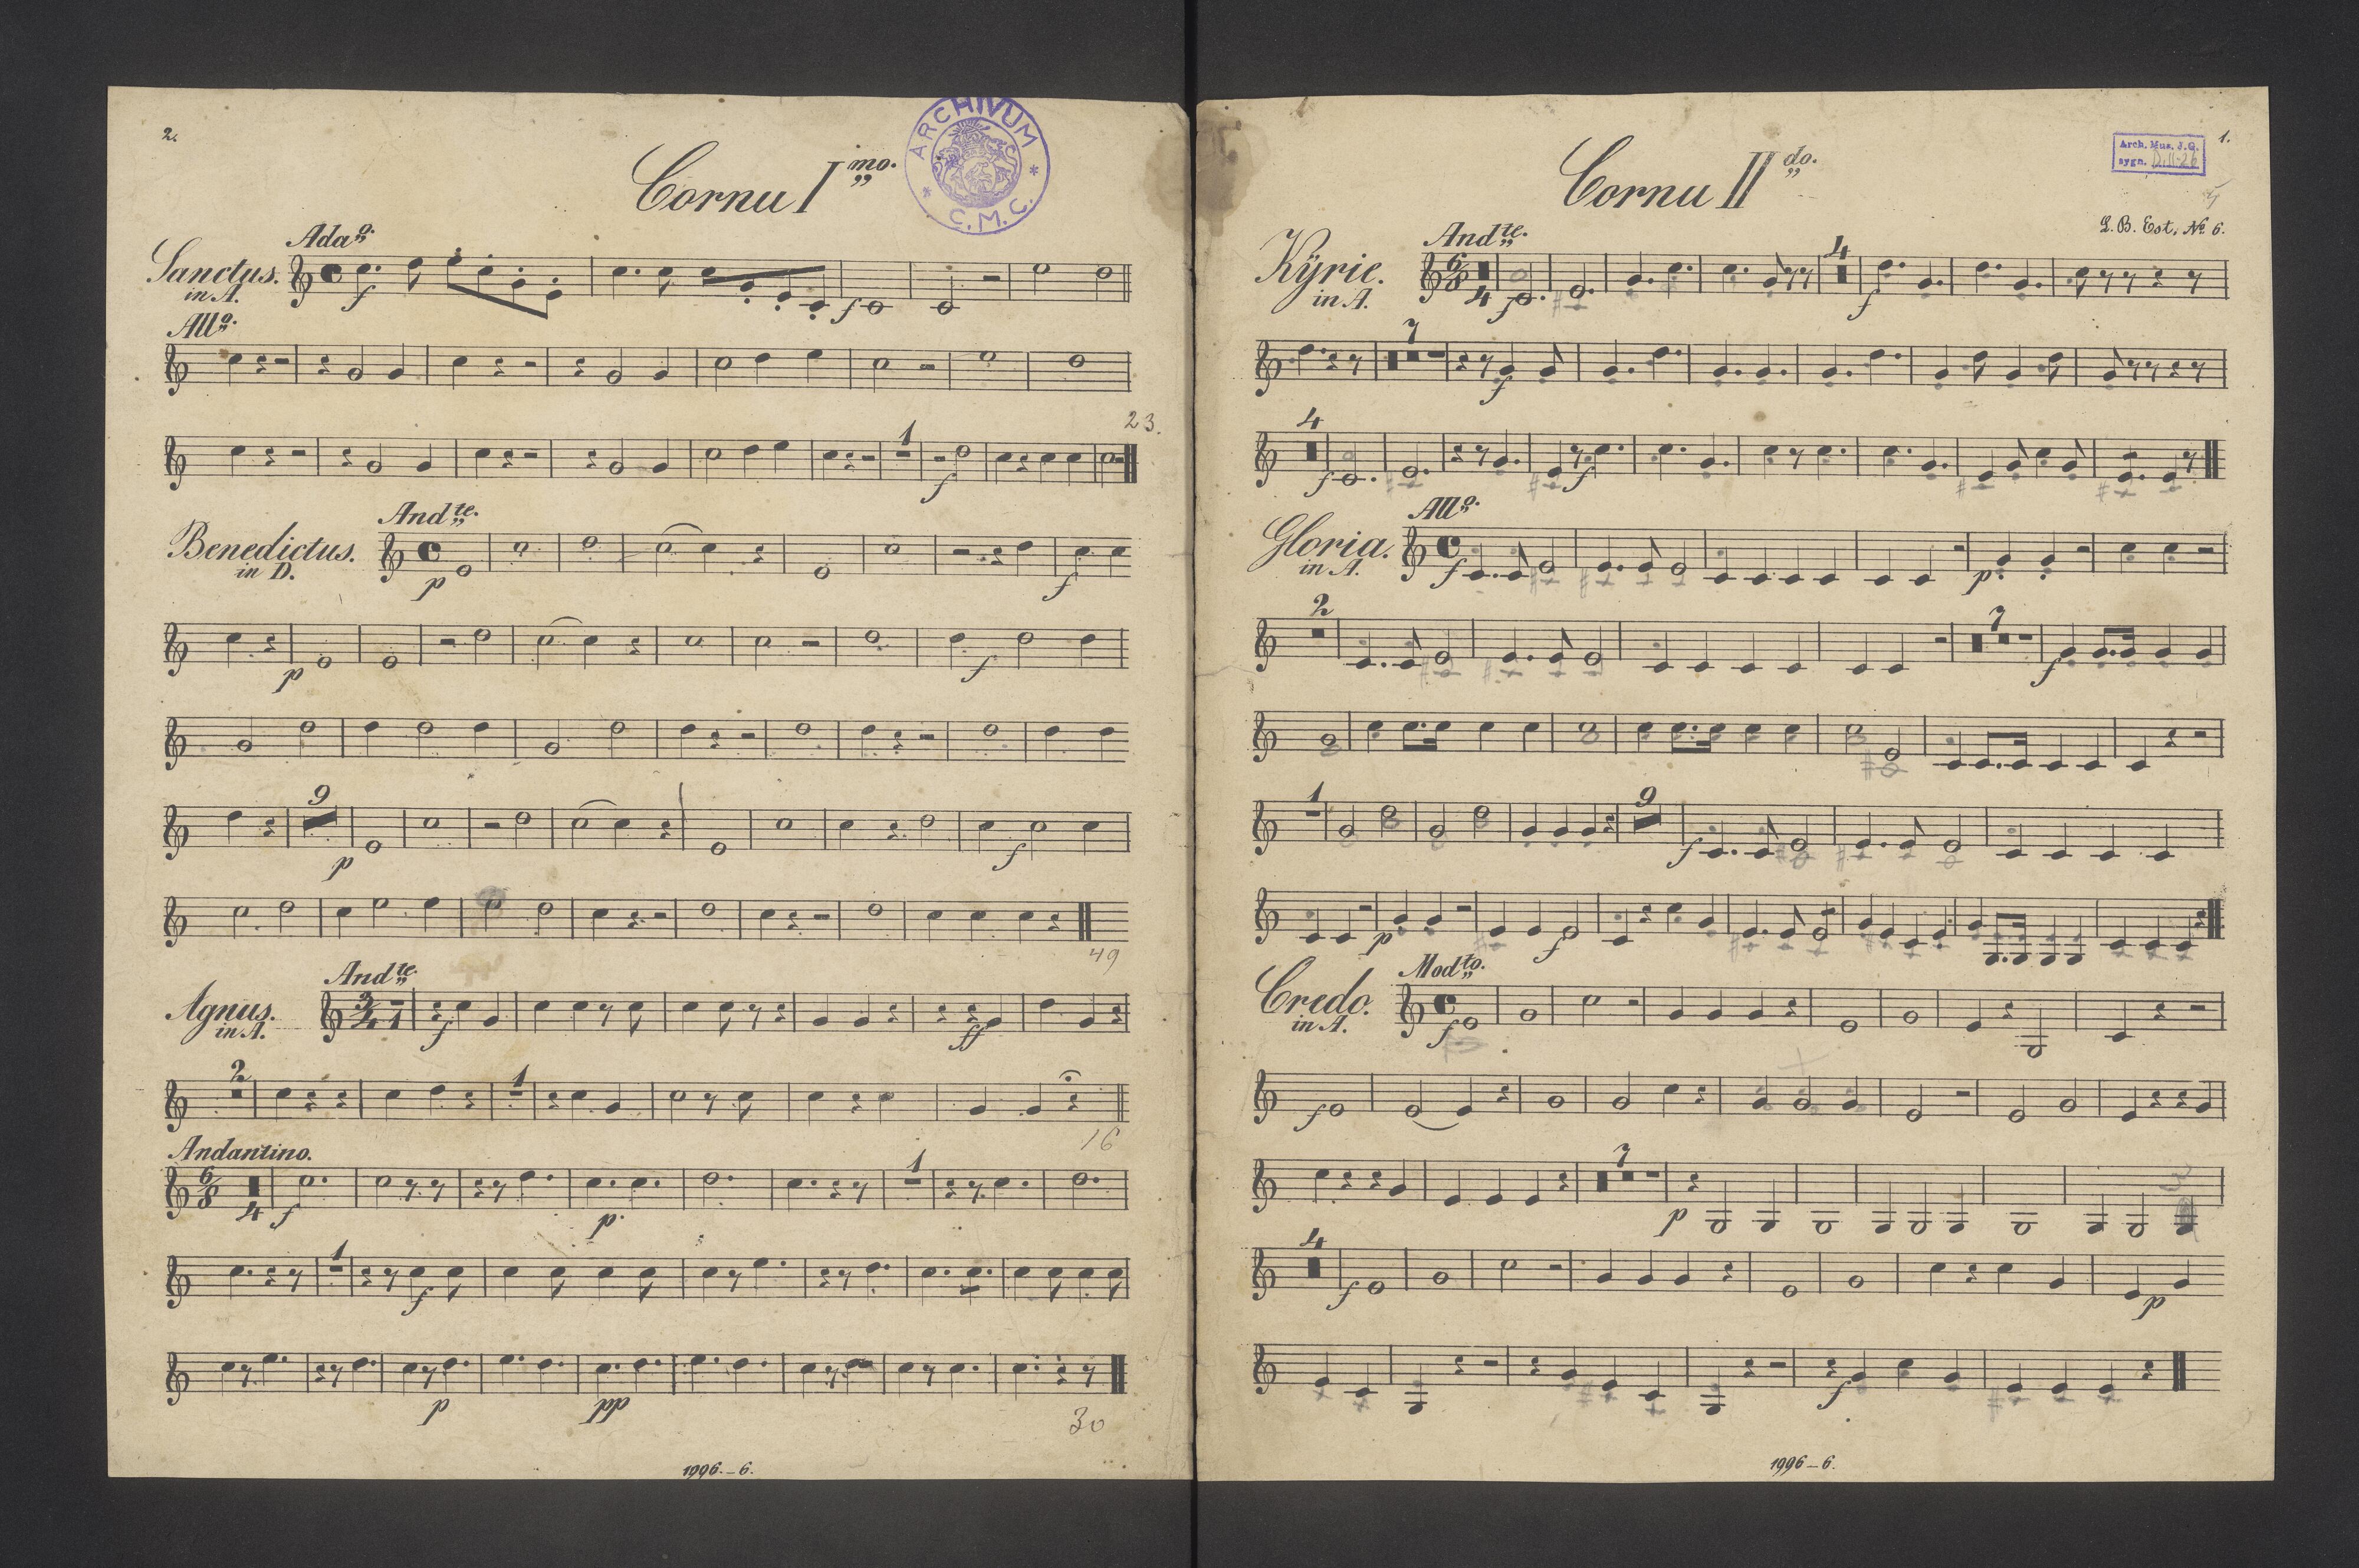 2.
Cornu I mo.
ARCHIVUM
* C.M.C. *
Ada o.
Sanctus.
in A.
f
f
All o.
23.
1
f
And te.
Benedictus.
in D.
p
f
p
f
9
p
f
49
And te.
Agnus.
in A.
3/4
1
f
ff
2
1
16
Andantino.
6/8
4
f
p.
1
1
f
p
pp
30
1996.-6.
1.
Cornu II do.
Arch. Mus. J.G.
sygn.
L. B. Est. No 6.
And te.
Kÿrie.
in A.
6/8
4
f
4
f
7
f
4
f
f
All o.
Gloria.
in A.
f
p
2
7
f
1
9
f
p
f
Mod to.
Credo.
in A.
f
f
7
p
4
f
p
f
1996-6.